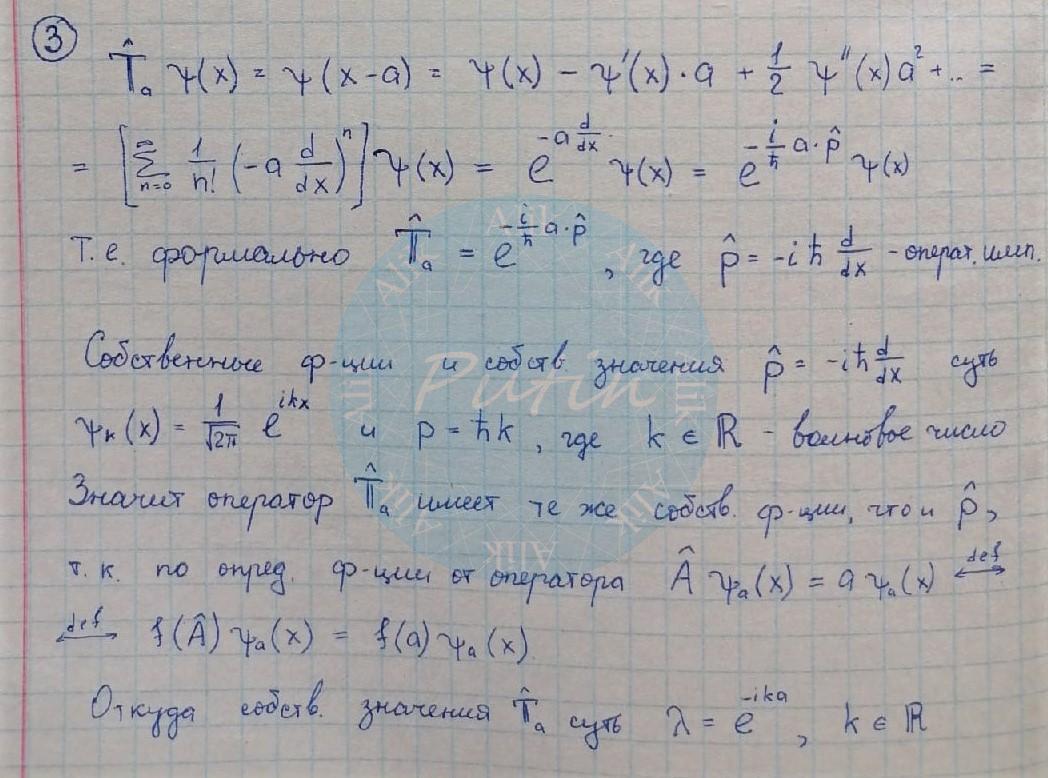 3
T̂ₐ ψ(x) = ψ(x-a) = ψ(x) - ψ'(x)·a + 1/2 ψ''(x)a² + .. =
= [∑_{n=0}^{∞} 1/n! (-a d/dx)ⁿ] ψ(x) = e^{-a d/dx} ψ(x) = e^{-i/ħ a·p̂} ψ(x)
Т.е. формально T̂ₐ = e^{-i/ħ a·p̂}, где p̂ = -iħ d/dx - операт. имп.
Собственные ф-ции и собств. значения p̂ = -iħ d/dx суть
ψₖ(x) = 1/√2π e^{ikx} и p = ħk, где k ∈ ℝ - волновое число
Значит оператор T̂ₐ имеет те же собств. ф-ции, что и p̂,
т.к. по опред. ф-ции от оператора Â ψₐ(x) = a ψₐ(x) ⟷^{def}
⟷^{def} f(Â) ψₐ(x) = f(a) ψₐ(x)
Откуда собств. значения T̂ₐ суть λ = e^{-ika}, k ∈ ℝ
Alik
Putin